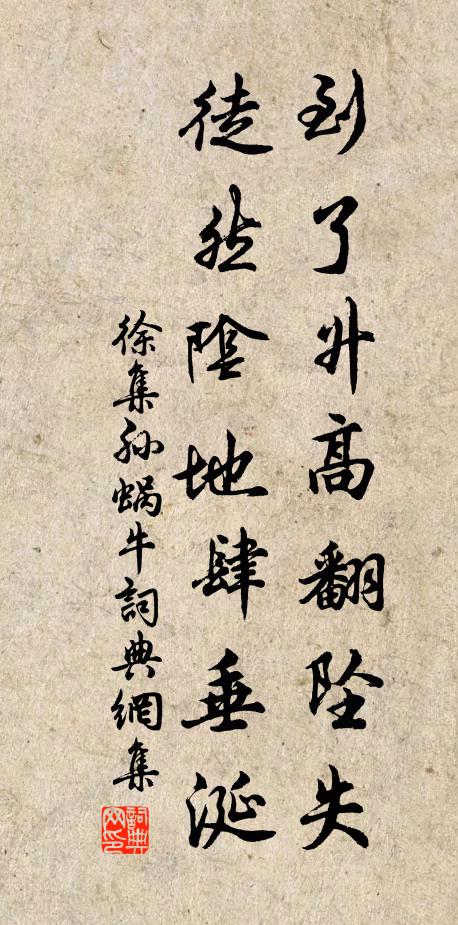 到了升高翻坠失
徒然陰地肆垂涎
徐集孙蝸牛詞典網集
詞典网印